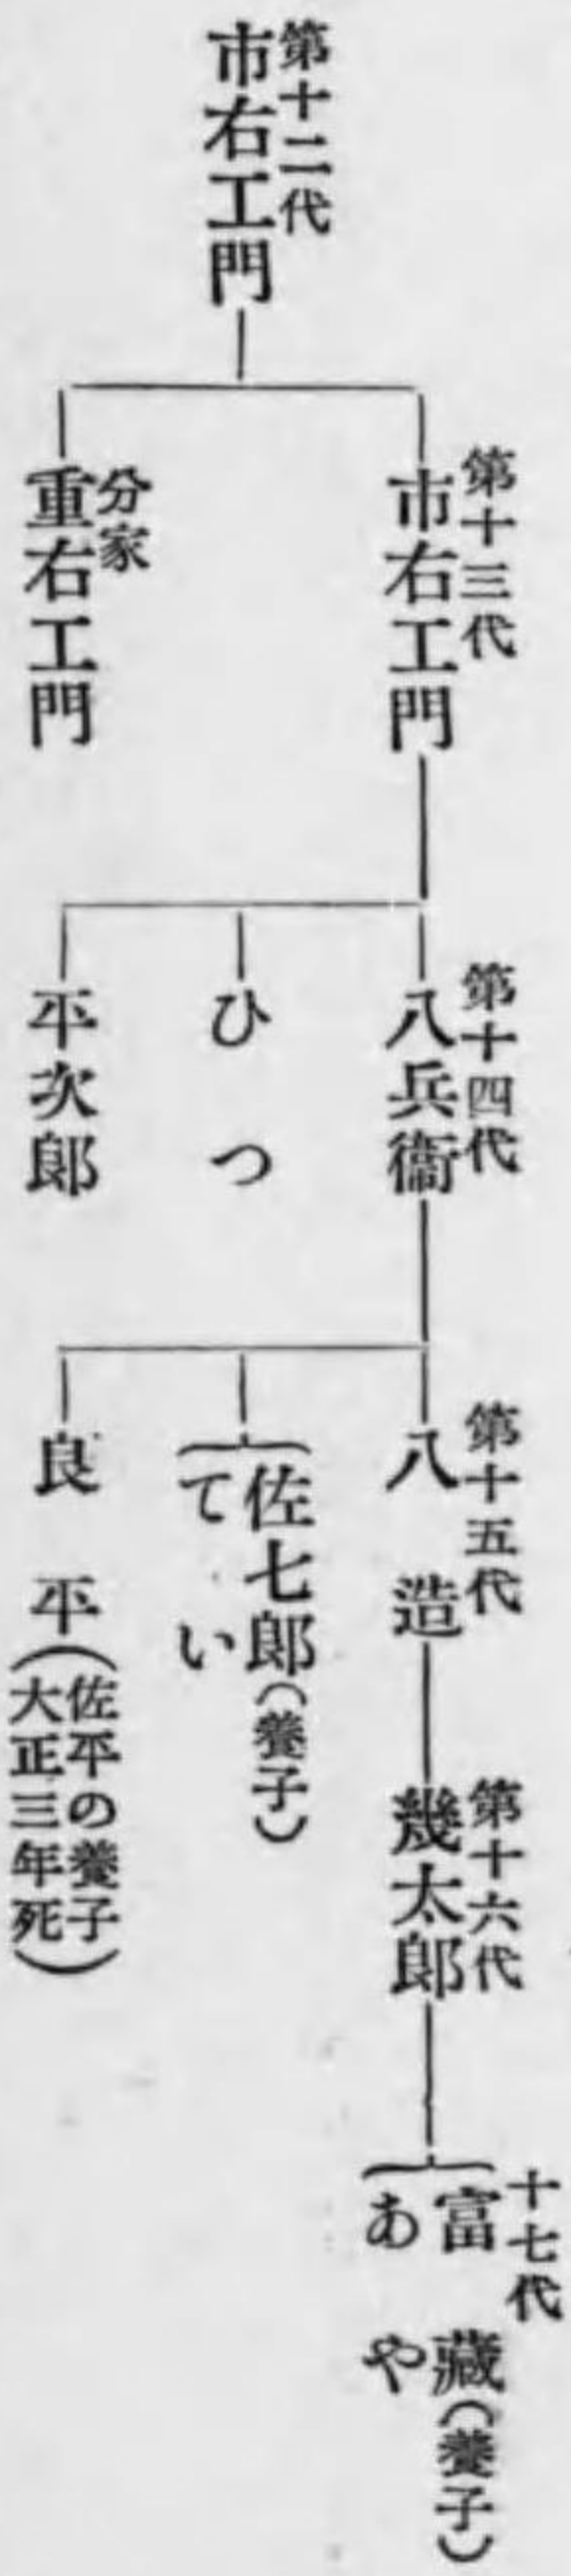 第十二代
市右工門
第十三代
市右工門
分家
重右工門
第十四代
八兵衞
ひつ
平次郎
第十五代
八造
佐七郎（養子）
てい
良平（佐平の養子
大正三年死）
第十六代
幾太郎
十七代
富藏（養子）
あや